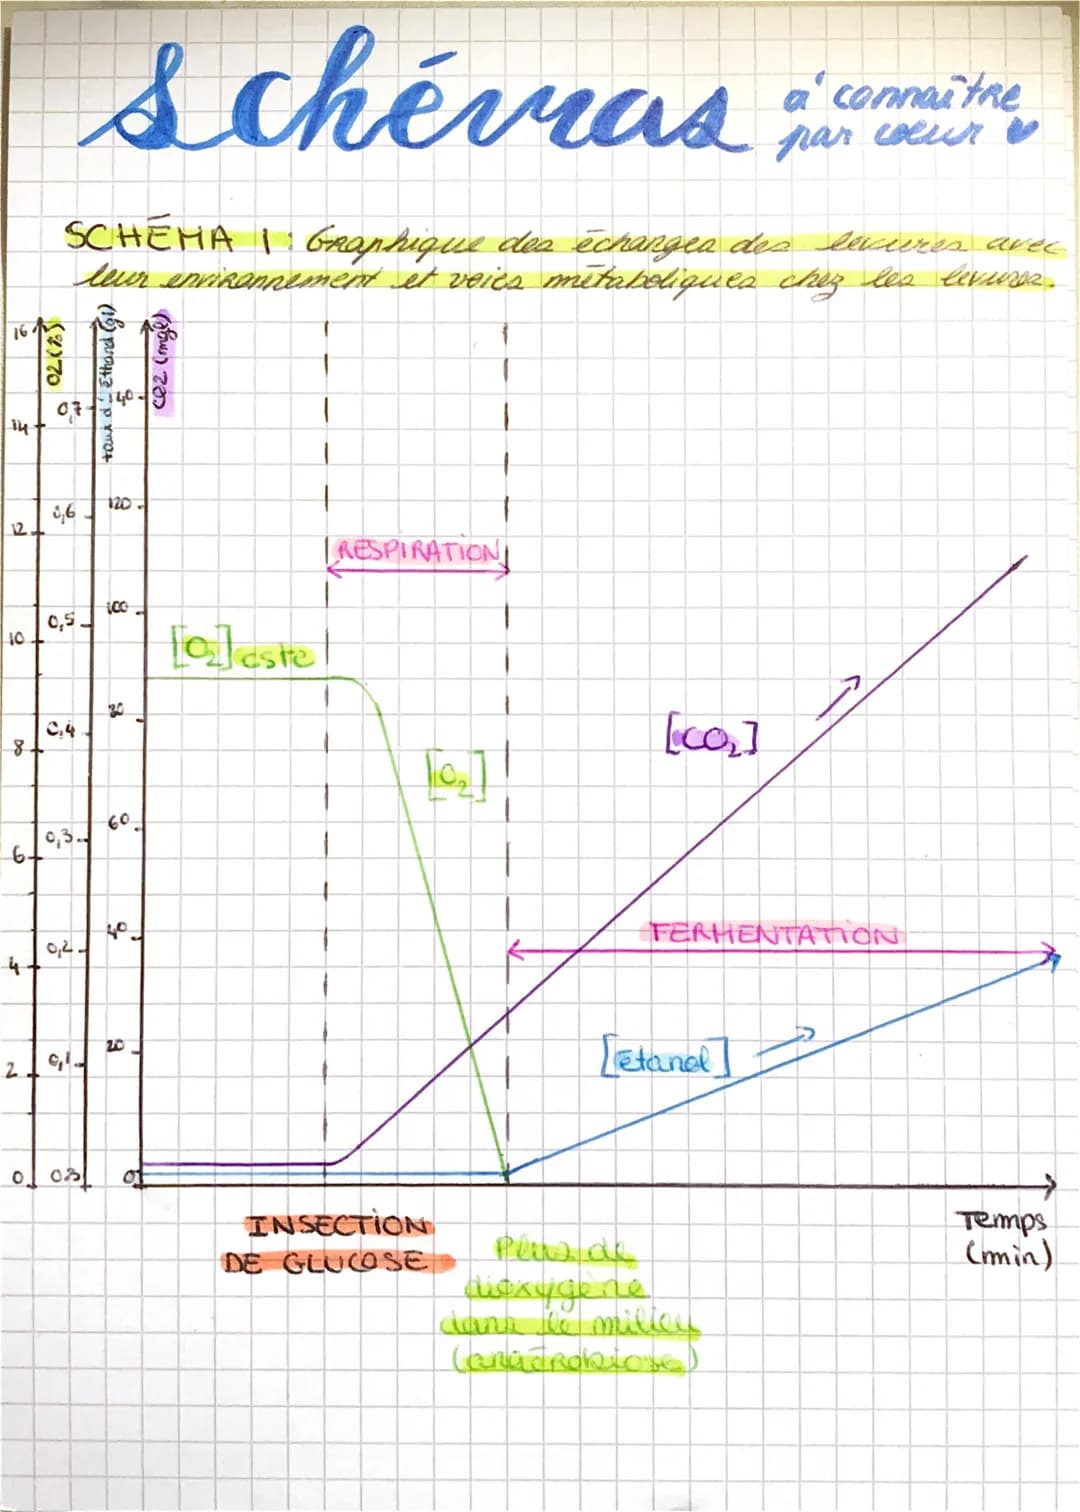 Schémas
à connaître
par cœur
SCHÉMA 1 : Graphique des échanges des levures avec
leur environnement et voies métaboliques chez les levures.
O2 (%)
taux d'Ethanol (g/l)
CO2 (mg/l)
16
14
12
10
8
6
4
2
0
0,7
0,6
0,5
0,4
0,3
0,2
0,1
40
120
100
80
60
40
20
0
RESPIRATION
[O2] cste
[O2]
[CO2]
FERMENTATION
[étanol]
INSECTION
DE GLUCOSE
Plus de
dioxygène
dans le milieu
(anaérobiose)
Temps
(min)